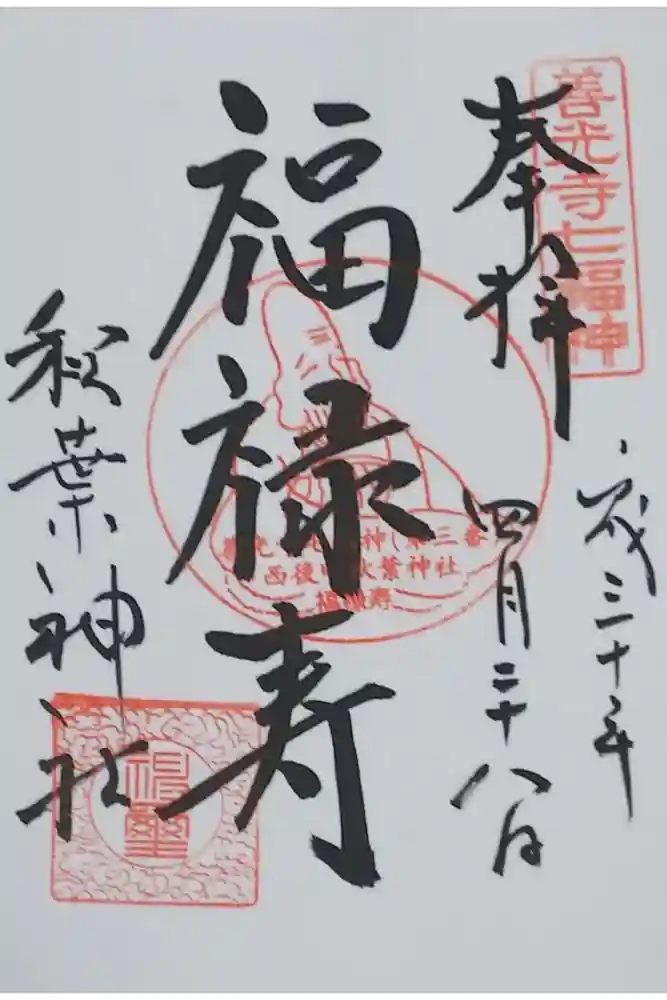 善光寺七福神
奉拝
成三十年
四月二十八日
福禄寿
神
第三番
西後
秋葉神社
福禄寿
秋葉神社